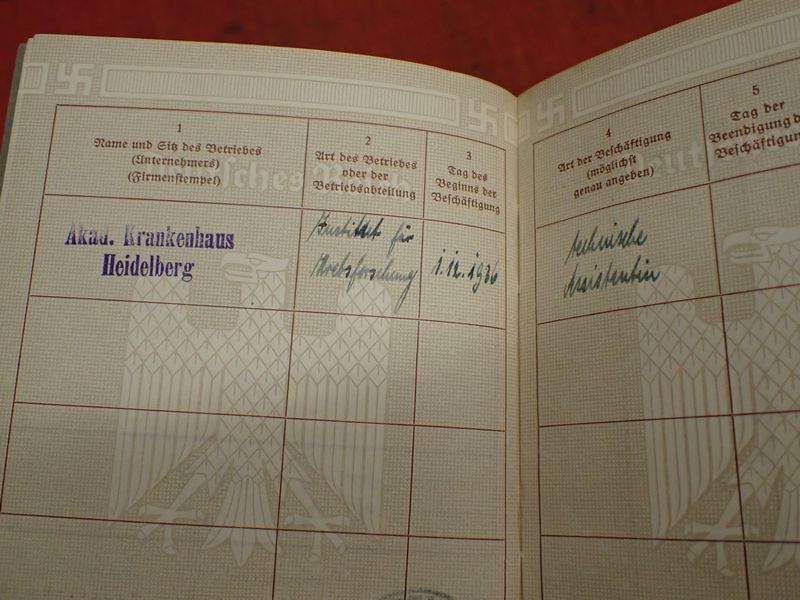 1
Name und Sitz des Betriebes
(Unternehmers)
(Firmenstempel)
2
Art des Betriebes
oder der
Betriebsabteilung
3
Tag des
Beginns der
Beschäftigung
4
Art der Beschäftigung
(möglichst
genau angeben)
5
Tag der
Beendigung d
Beschäftigun
Akad. Krankenhaus
Heidelberg
Institut für
Krebsforschung
1.12.1936
technische
Assistentin